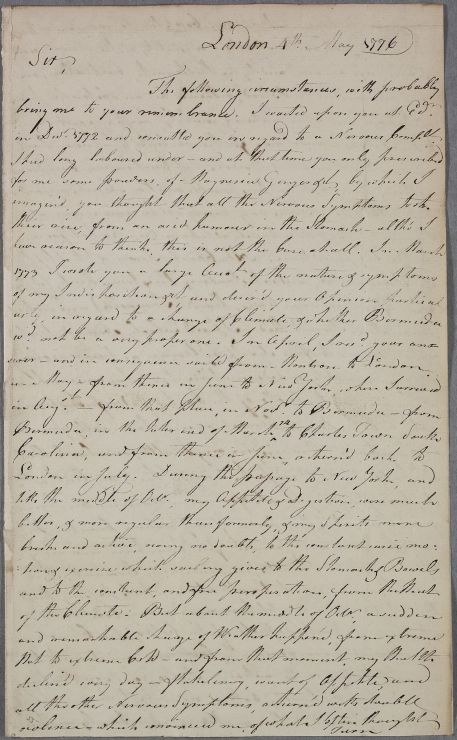 London 4th May 1776
Sir,
The following circumstances, will probably
bring me to your remembrance. I waited upon you at Edr.
in Decr. 1772 and consulted you in regard to a Nervous Complt.
I had long laboured under – and at that time you only prescribed
for me some powders, of Magnesia Ginger &c, by which I
imagin'd, you thought that all the Nervous Symptoms took
their rise, from an acid humour in the Stomach – altho' I
have reason to think, this is not the Case at all. In March
1773 I wrote you a large Acct. of the nature & symptoms
of my Indisposition &c and desir'd your Opinion particul
arly, in regard to a Change of Climate, & whether Bermuda
wd. not be a very proper one. In April, I recd. your an=
swer – and in consequence sail'd from Montrose to London
in May – from thence in June to New York, where I arrived
in Augt. – from that place, in Novr. to Bermuda – from
Bermuda, in the latter end of March to Charles Town South
Carolina, and from thence in June, return'd back to
London in July. During the passage to New York, and
till the middle of Octr., my Appetite & digestion, were much
better, & more regular than formerly, & my spirits more
brisk and active, owing no doubt, to the constant mo=
tion & exercise which sailing gives to the Stomach & Bowels
and to the constant, and free perspiration, from the Heat
of the Climate. But about the middle of Octr. a sudden
and remarkable change of Weather happen'd, from extreme
Hot to extreme Cold – and from that moment, my Health
declin'd every day – flatulency, want of Appetite, and
all the other Nervous Symptoms, return'd with double
violence – which convinced me, of what I often thought